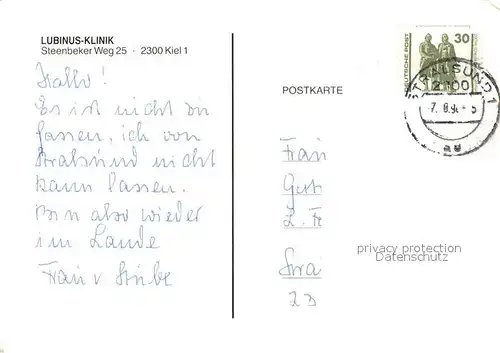 LUBINUS-KLINIK
Steenbeker Weg 25 · 2300 Kiel 1
Hallo!
Es ist nicht zu
fassen, ich von
Stralsund nicht
kann lassen.
Bin also wieder
im Lande
Frau v. Stube
POSTKARTE
DEUTSCHE POST
30
STRALSUND 1
2300
7. 8. 9
au
Frau
Gert
L. Fr
Stra
23
privacy protection
Datenschutz